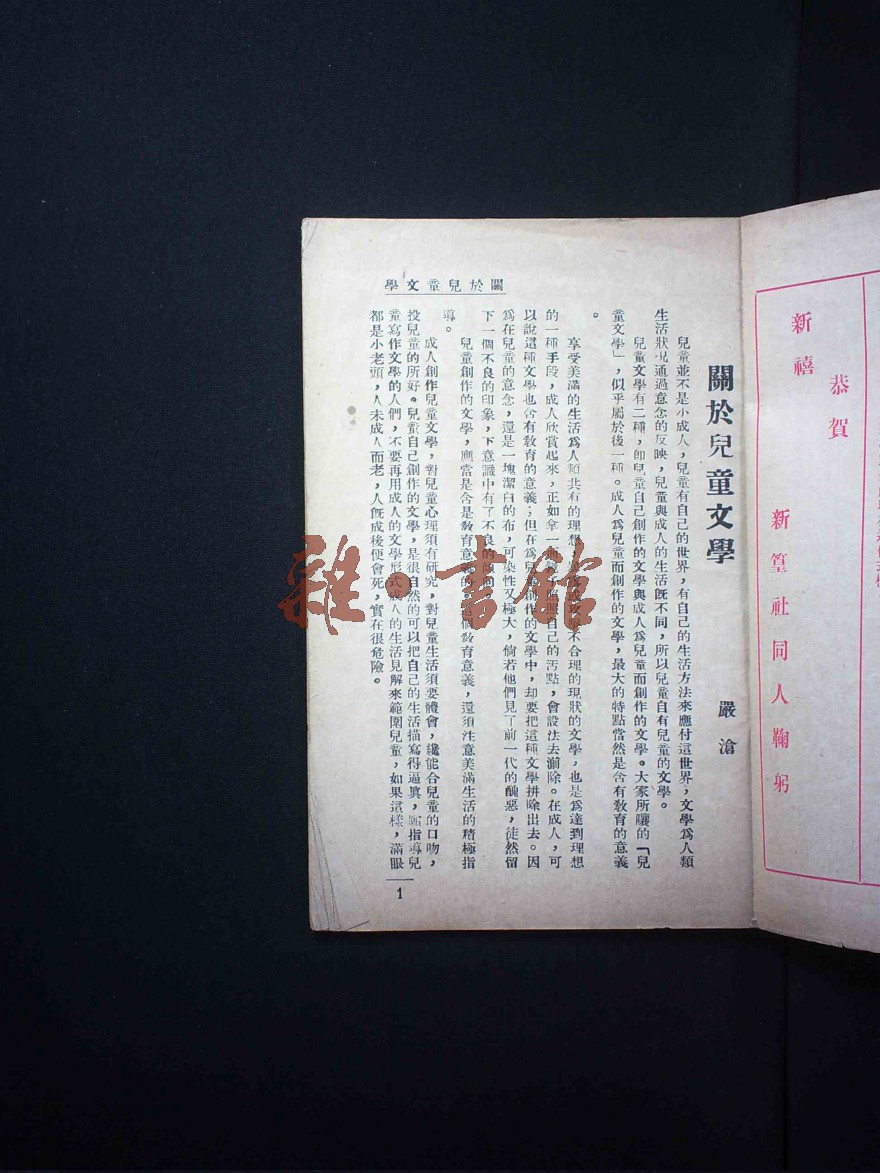 恭賀
新禧
新篁社同人鞠躬
關於兒童文學
嚴滄
兒童並不是小成人,兒童有自己的世界,有自己的生活方法來應付這世界,文學爲人類
生活狀況通過意念的反映,兒童與成人的生活旣不同,所以兒童自有兒童的文學。
兒童文學有二種,卽兒童自己創作的文學與成人爲兒童而創作的文學。大家所嚷的「兒
童文學」,似乎屬於後一種。成人爲兒童而創作的文學,最大的特點當然是含有敎育的意義
。
享受美滿的生活爲人類共有的理想,不合理的現狀的文學,也是爲達到理想
的一種手段,成人欣賞起來,正如拿一照自己的汚點,會設法去湔除。在成人,可
以說這種文學也含有敎育的意義;但在爲兒創作的文學中,却要把這種文學拼除出去。因
爲在兒童的意念,還是一塊潔白的布,可染性又極大,倘若他們見了前一代的醜惡,徒然留
下一個不良的印象,下意識中有了不良的傾向。
兒童創作的文學,應當是含是敎育意義的。這個敎育意義,還須注意美滿生活的積極指
導。
成人創作兒童文學,對兒童心理須有研究,對兒童生活須要體會,纔能合兒童的口吻,
投兒童的所好。兒童自己創作的文學,是很自然的可以把自己的生活描寫得逼眞,願指導兒
童寫作文學的人們,不要再用成人的文學形式成人的生活見解來範圍兒童,如果這樣,滿眼
都是小老頭,人未成人而老,人旣成後便會死,實在很危險。
關於兒童文學
1
雜·書館